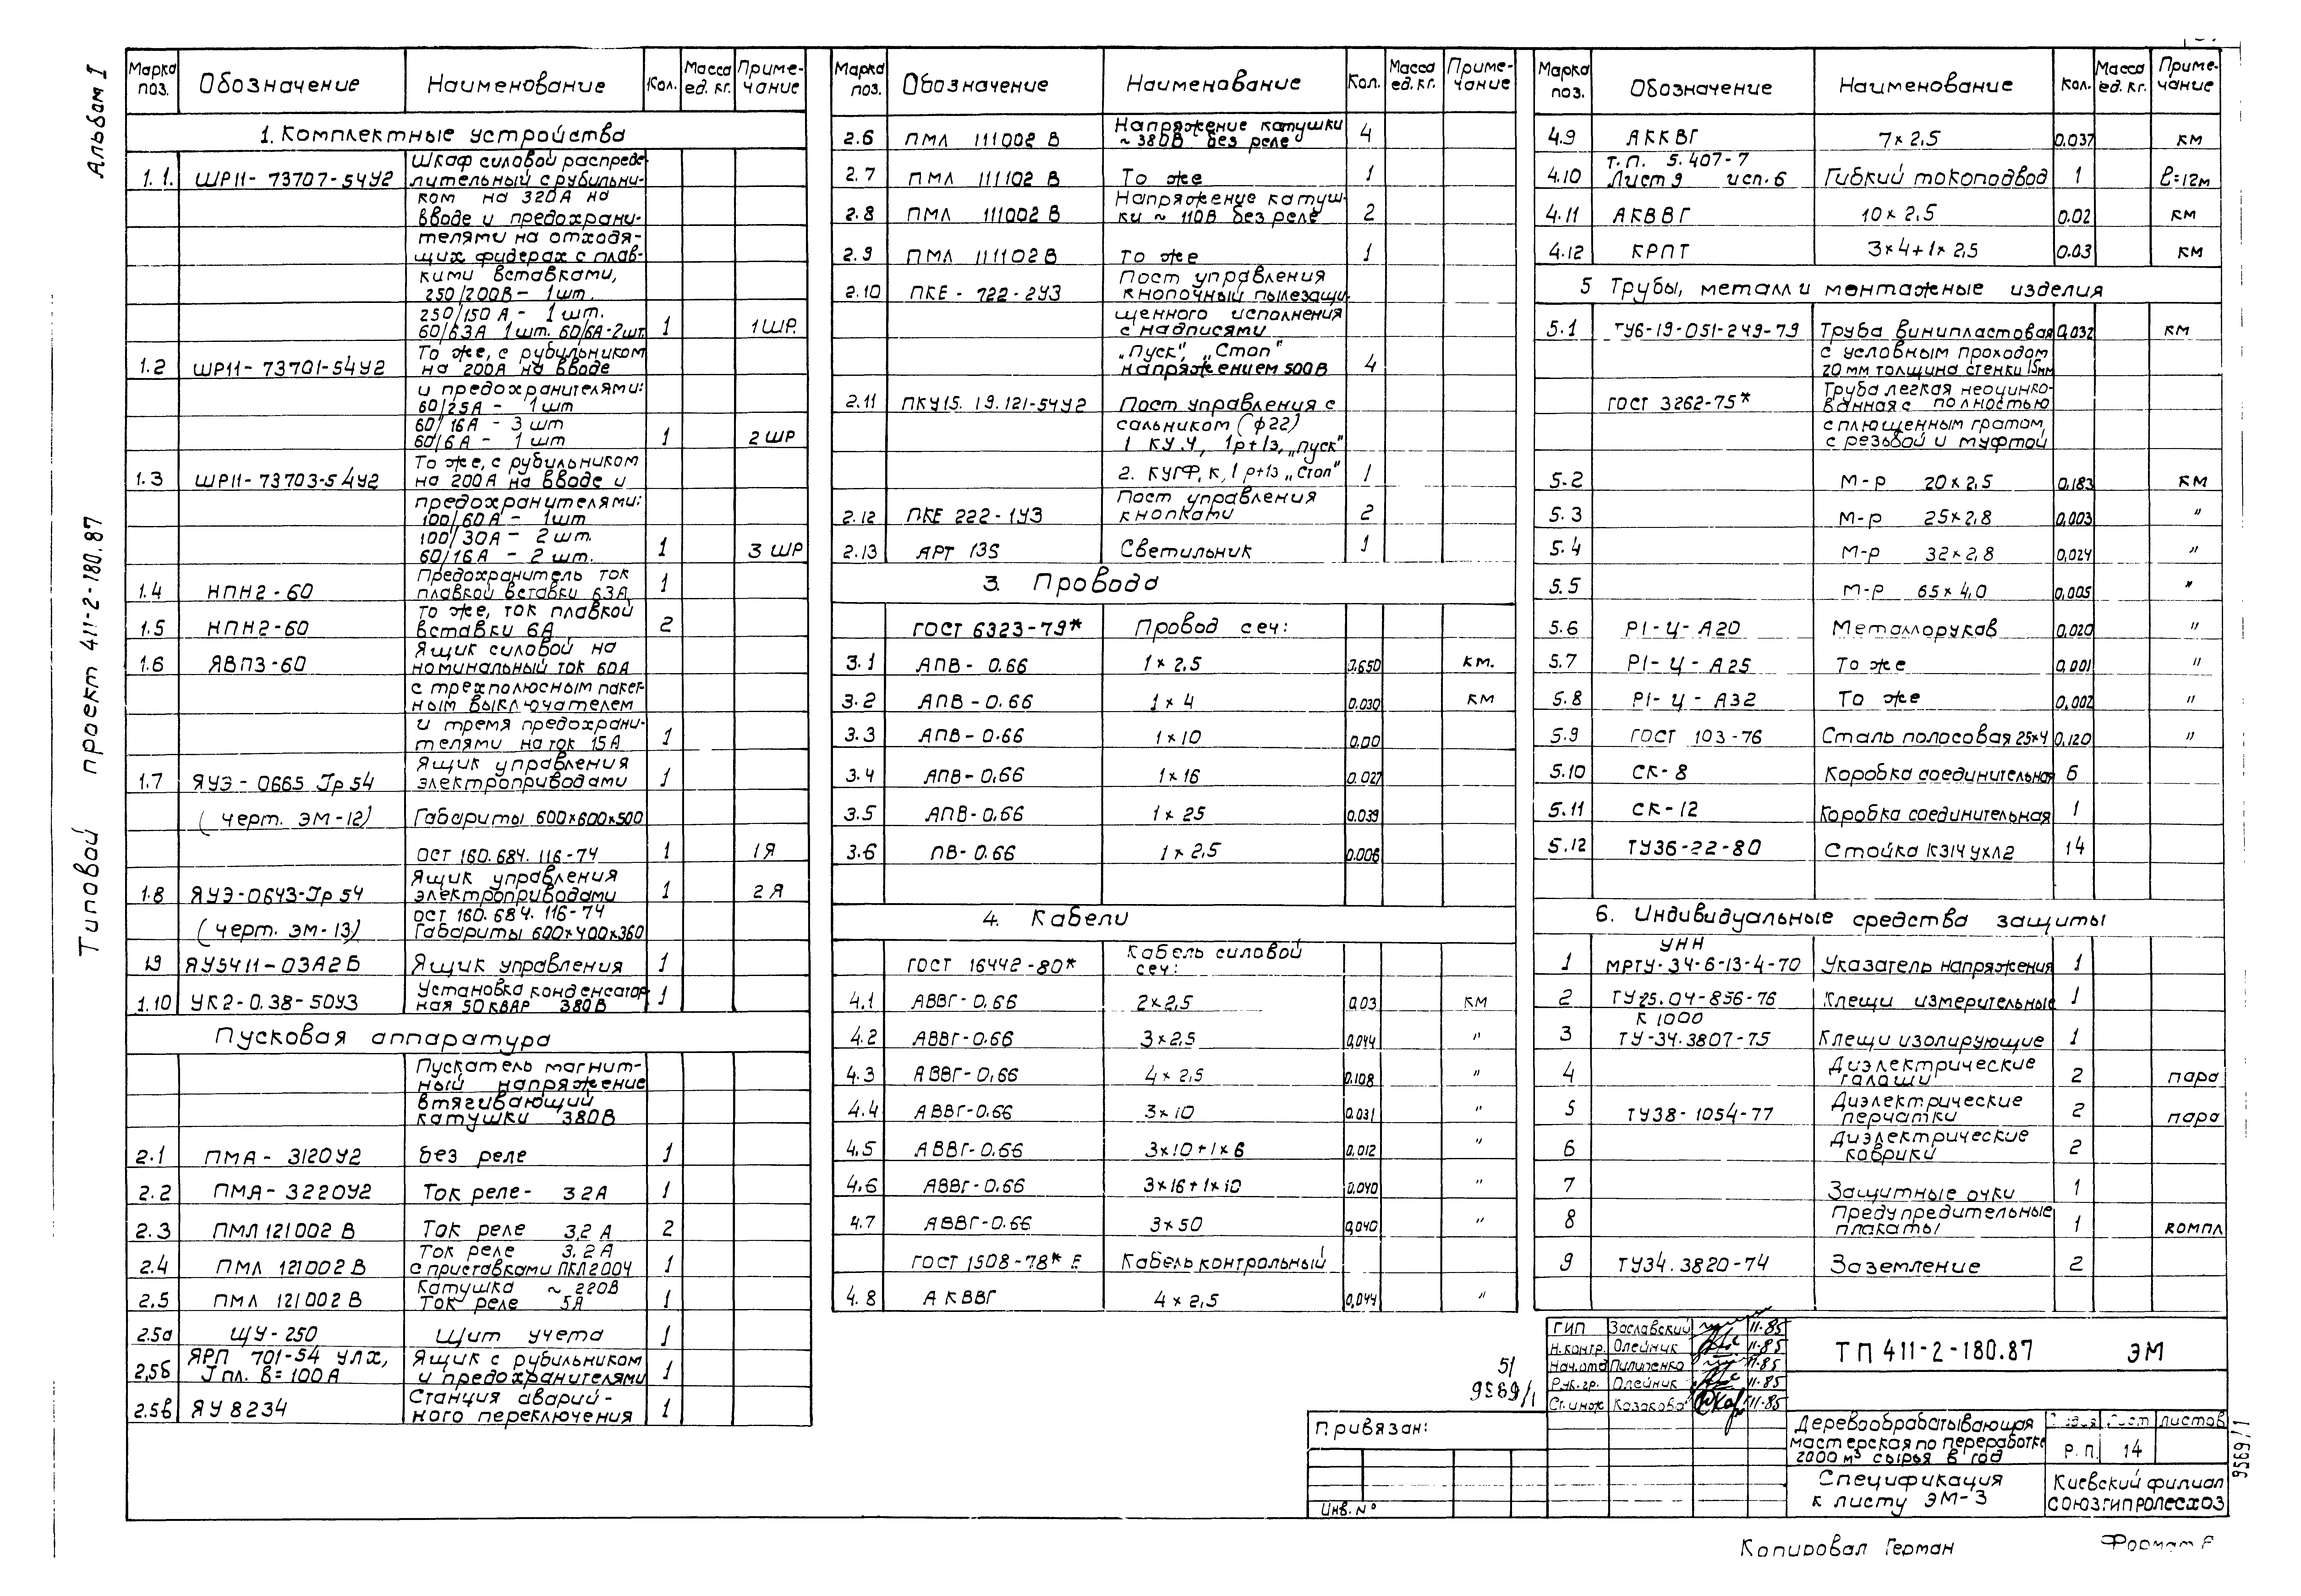 Альбом I
Типовой проект 411-2-180.87
Марка поз. Обозначение Наименование Кол. Масса ед. кг. Примечание
1. Комплектные устройства
Шкаф силовой распреде-
1.1. ШР11-73707-54У2 лительный с рубильни-
ком на 320А на
вводе и предохрани-
телями на отходя-
щих фидерах с плав-
кими вставками,
250/200В - 1шт.
250/150 А - 1 шт.
60/63А 1шт. 60/6А-2шт 1 1ШР.
То же, с рубульником
1.2 ШР11-73701-54У2 на 200А на вводе
и предохранителями:
60/25А - 1шт
60/16А - 3 шт
60/6А - 1 шт 1 2ШР
То же, с рубильником
1.3 ШР11-73703-54У2 на 200А на вводе и
предохранителями:
100/60А - 1шт
100/30А - 2 шт.
60/16А - 2 шт. 1 3 ШР
Предохранитель ток
1.4 НПН2-60 плавкой вставки 63А 1
То же, ток плавкой
1.5 НПН2-60 вставки 6А 2
Ящик силовой на
1.6 ЯВПЗ-60 номинальный ток 60А
с трехполюсным пакет-
ным выключателем
и тремя предохрани-
телями на ток 15А 1
Ящик управления
1.7 ЯУЭ-0665 Jр 54 электроприводами 1
(черт. ЭМ-12) Габариты 600×600×500
ОСТ 160.684.116-74 1 1Я
Ящик управления
1.8 ЯУЭ-0643-Jр 54 электроприводами 1 2Я
ОСТ 160.684.116-74
(черт. ЭМ-13) Габариты 600×400×360
1.9 ЯУ5411-03А2Б Ящик управления 1
Установка конденсатор
1.10 УК2-0.38-50У3 ная 50 КВАР 380В 1
Пусковая аппаратура
Пускатель магнит-
ный напряжение
втягивающий
катушки 380В
2.1 ПМА-3120У2 без реле 1
2.2 ПМА-3220У2 Ток реле- 32А 1
2.3 ПМЛ 121002 В Ток реле 3,2 А 2
Ток реле 3.2А
2.4 ПМЛ 121002 В с приставками ПКЛ2004 1
Катушка ~ 220В
2.5 ПМЛ 121002 В Ток реле 5А 1
2.5а ЩУ-250 Щит учета 1
ЯРП 701-54 УЛХ, Ящик с рубильником
2,5б J пл. В=100А и предохранителями 1
Станция аварий-
2.5в ЯУ 8234 ного переключения 1
Марка поз. Обозначение Наименование Кол. Масса ед. кг. Примечание
Напряжение катушки
2.6 ПМЛ 111002 В ~380В без реле 4
2.7 ПМЛ 111102 В То же 1
Напряжение катуш-
2.8 ПМЛ 111002 В ки ~ 110В без реле 2
2.9 ПМЛ 111102В То же 1
Пост управления
2.10 ПКЕ-722-2У3 кнопочный пылезащи-
щенного исполнения
с надписями
„Пуск", „Стоп"
напряжением 500В 4
2.11 ПКУ15.19.121-54У2 Пост управления с
сальником (ф22)
1 КУ.У, 1р+1з,„Пуск"
2. КУГФ,К,1р+1з„Стоп" 1
Пост управления
2.12 ПКЕ 222-1У3 кнопками 2
2.13 АРТ 135 Светильник 1
3. Провода
ГОСТ 6323-79* Провод сеч:
3.1 АПВ-0.66 1×2.5 0.650 км.
3.2 АПВ-0.66 1×4 0.030 км
3.3 АПВ-0.66 1×10 0.00
3.4 АПВ-0.66 1×16 0.027
3.5 АПВ-0.66 1×25 0.039
3.6 ПВ-0.66 1×2.5 0.006
4. Кабели
Кабель силовой
ГОСТ 16442-80* сеч:
4.1 АВВГ-0.66 2×2.5 0.03 км
4.2 АВВГ-0.66 3×2.5 0,044 "
4.3 АВВГ-0.66 4×2.5 0.108 "
4.4 АВВГ-0.66 3×10 0.031 "
4.5 АВВГ-0.66 3×10+1×6 0,012 "
4.6 АВВГ-0.66 3×16+1×10 0,040 "
4.7 АВВГ-0.66 3×50 0,040 "
ГОСТ 1508-78* Е Кабель контрольный
4.8 АКВВГ 4×2,5 0,044 "
Марка поз. Обозначение Наименование Кол. Масса ед. кг. Примечание
4.9 АККВГ 7×2,5 0.037 км
т.п. 5.407-7
4.10 Лист9 исп.6 Гибкий токоподвод 1 ℓ=12м
4.11 АКВВГ 10×2.5 0.02 км
4.12 КРПТ 3×4+1×2,5 0.03 км
5 Трубы, металл и монтажные изделия
5.1 ТУ6-19-051-249-79 Труба винипластовая 0,032 км
с условным проходом
20 мм толщина стенки 1,5мм
Труба легкая неоцинко-
ГОСТ 3262-75* ванная с полностью
сплющенным гратом,
с резьбой и муфтой
5.2 М-р 20×2,5 0,183 км
5.3 М-р 25×2,8 0,003 "
5.4 М-р 32×2,8 0,024 "
5.5 М-р 65×4,0 0,005 "
5.6 Р1-Ц-А20 Металлорукав 0,020 "
5.7 Р1-Ц-А25 То же 0,001 "
5.8 Р1-Ц-А32 То же 0,002 "
5.9 ГОСТ 103-76 Сталь полосовая 25×4 0,120 "
5.10 СК-8 Коробка соединительная 6
5.11 СК-12 Коробка соединительная 1
5.12 ТУ36-22-80 Стойка К314 УХЛ2 14
6. Индивидуальные средства защиты
УНН
1 МРТУ-34-6-13-4-70 Указатель напряжения 1
2 ТУ25.04-856-76 Клещи измерительные 1
К 1000
3 ТУ-34.3807-75 Клещи изолирующие 1
Диэлектрические
4 галоши 2 пара
Диэлектрические
5 ТУ38-1054-77 перчатки 2 пара
Диэлектрические
6 коврики 2
7 Защитные очки 1
Предупредительные
8 плакаты 1 компл
9 ТУ34.3820-74 Заземление 2
ГИП Заславский 11.85
Н.контр. Олейник 11.85
Нач.отд Пилипенко 11.85
Рук.гр. Олейник 11.85
Ст.инж Казакова 11-85
ТП 411-2-180.87 ЭМ
51
9569/1
Привязан:
Инв. №
Деревообрабатывающая
мастерская по переработке
2000 м³ сырья в год
Лист листов
Р.П. 14
Спецификация
к листу ЭМ-3
Киевский филиал
СОЮЗГИПРОЛЕСХОЗ
9569/1
Копировал Герман
Формат